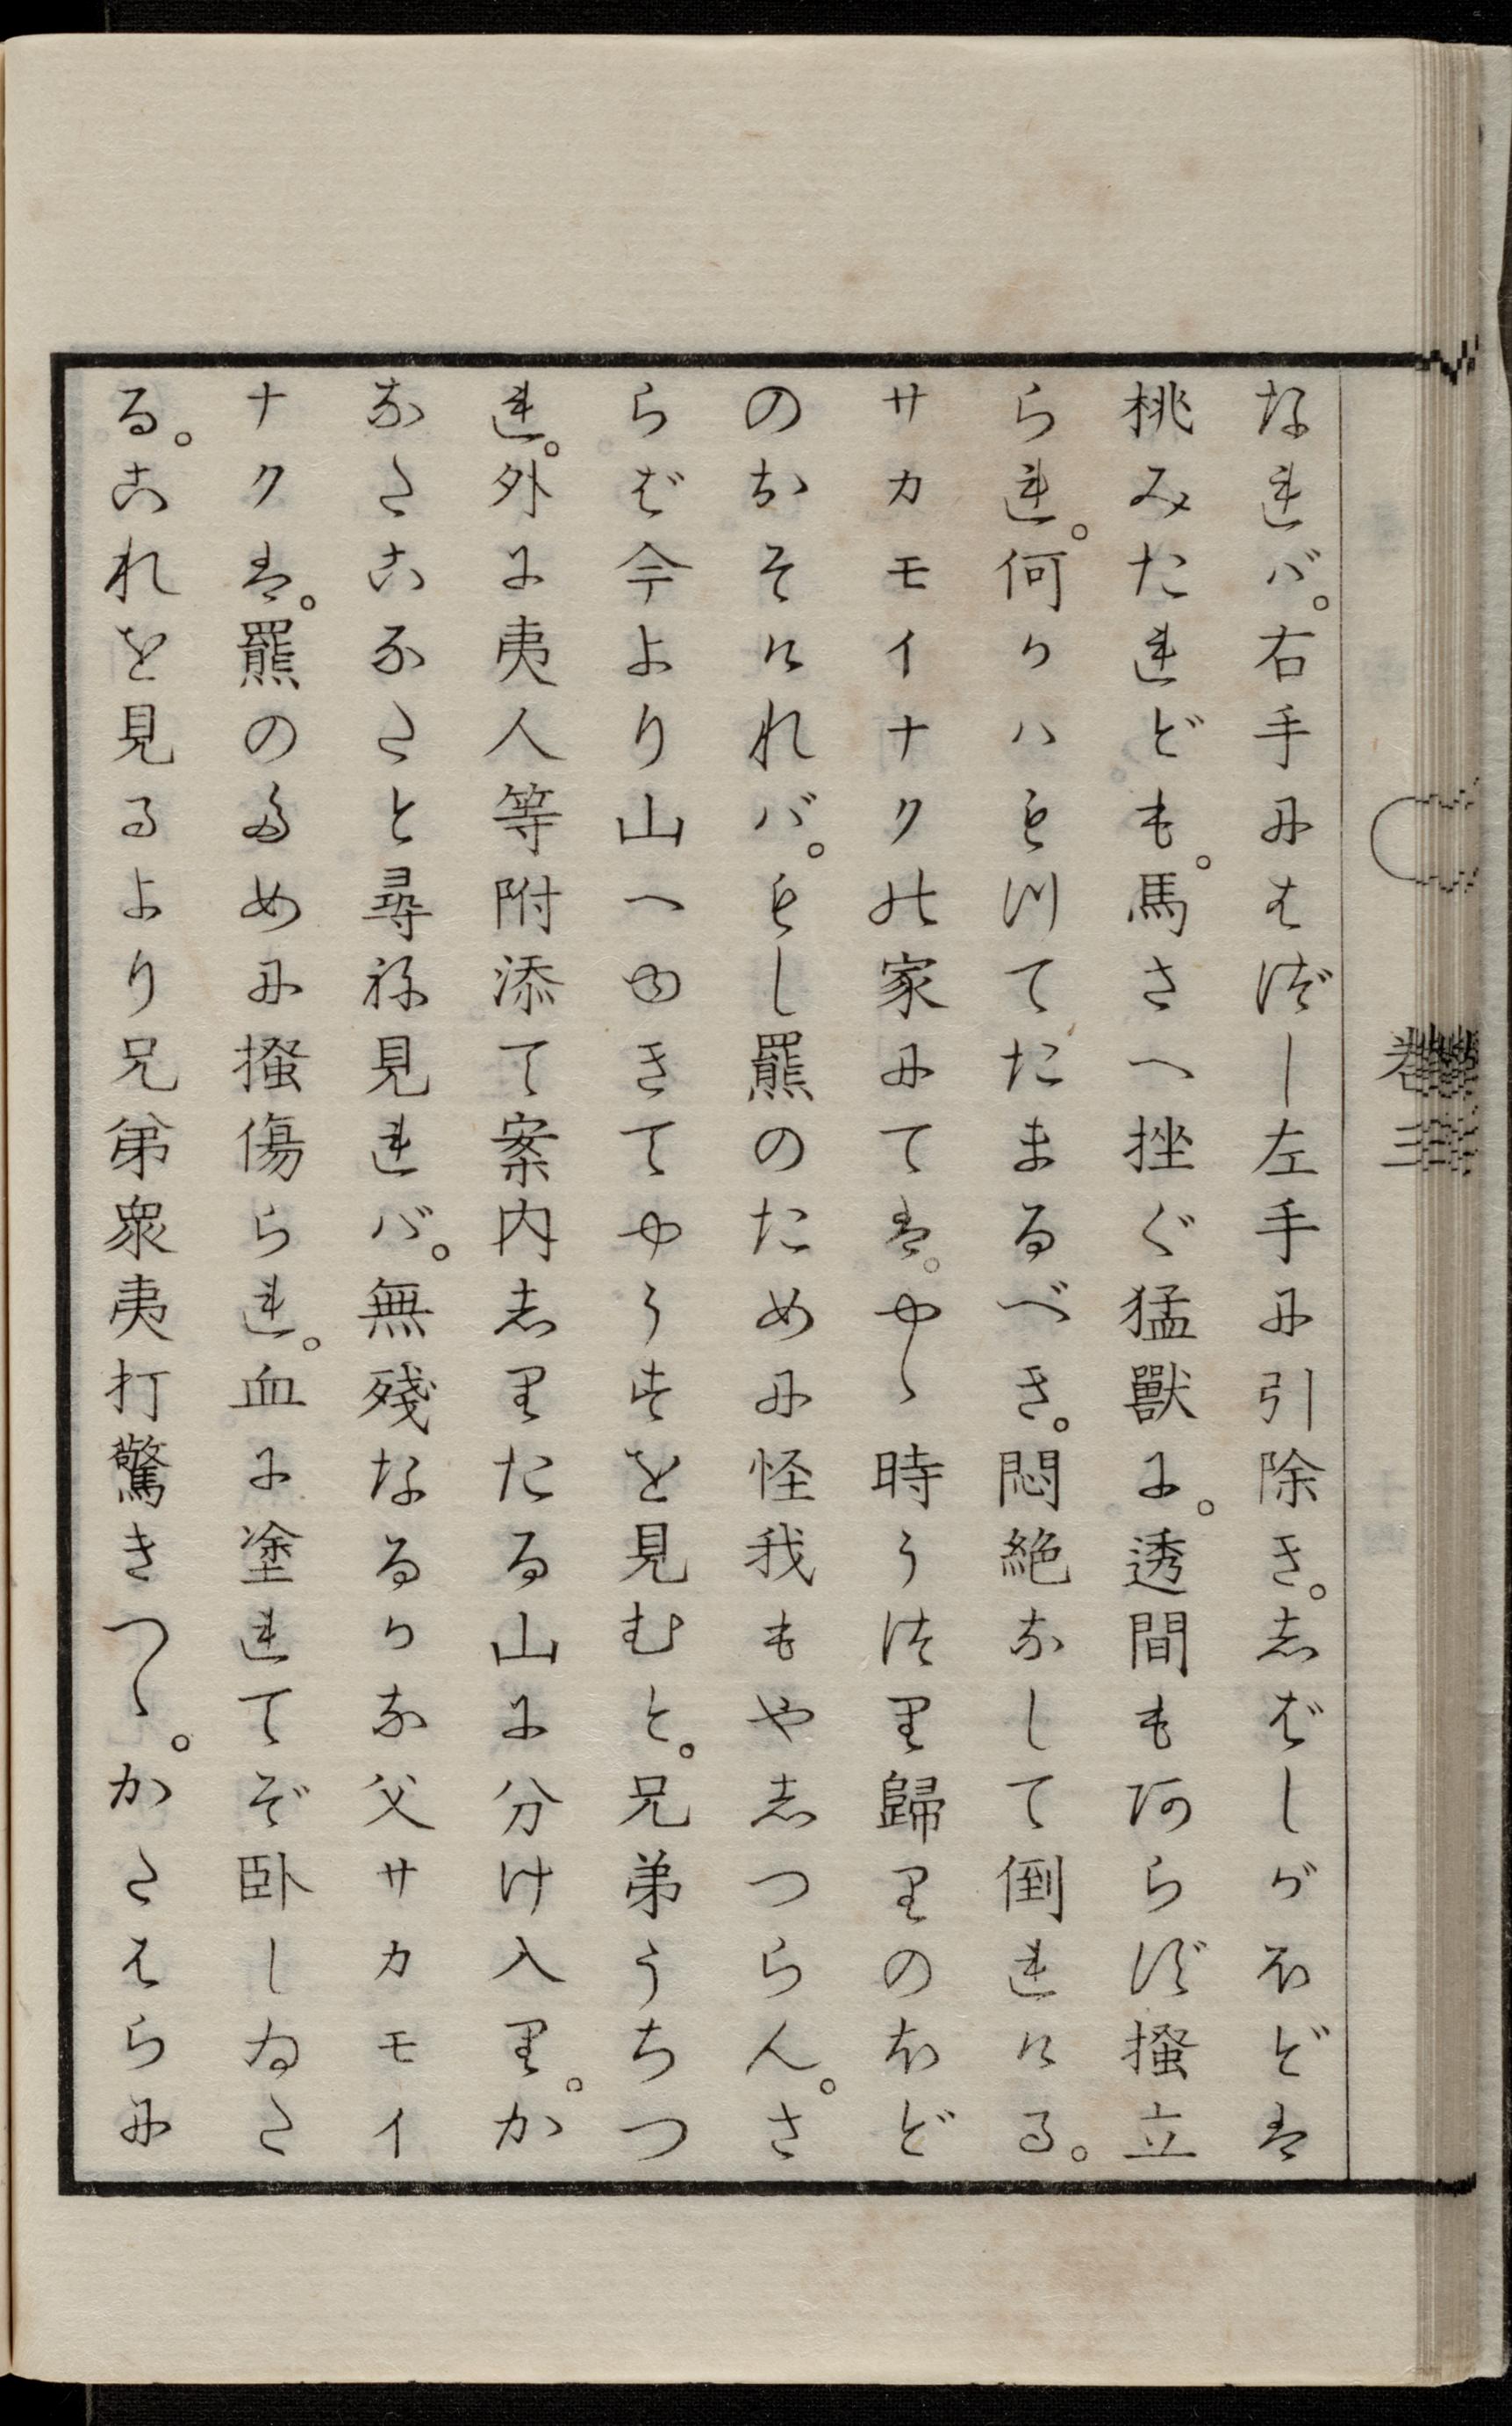 なれバ。右手にはづし左手に引除き。しばしがほどは
桃みたれども。馬さへ挫ぐ猛獸に。透間もあらず掻立
られ。何かハもつてたまるべき。悶絶なして倒れける。
サカモイナク の家にては。やゝ時うつり歸りのほど
のおそけれバ。もし羆のために怪我もやしつらん。さ
らば今より山へゆきてやうすを見むと。兄弟うちつ
れ。外に夷人等附添て案内しりたる山に分け入り。か
なたこなたと尋ね見れバ。無殘なるかな父サカモイ
ナクは。羆のために掻傷られ。血に塗れてぞ臥しゐた
る。これを見るより兄弟衆夷打驚きつゝ。かたはらに
卷三